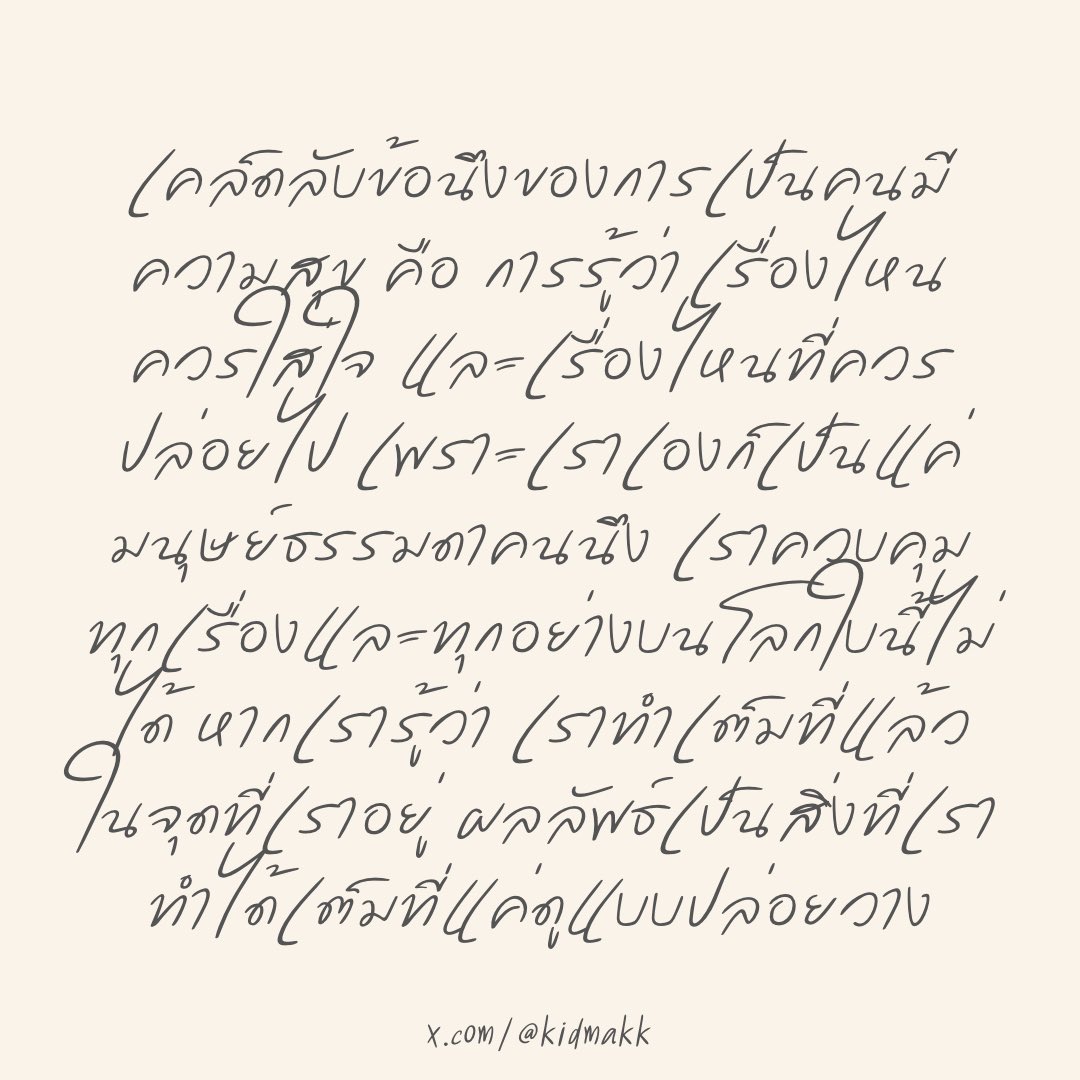 เคล็ดลับข้อนึงของการเป็นคนมี
ความสุข คือ การรู้ว่า เรื่องไหน
ควรใส่ใจ และเรื่องไหนที่ควร
ปล่อยไป เพราะเราเองก็เป็นแค่
มนุษย์ธรรมดาคนนึง เราควบคุม
ทุกเรื่องและทุกอย่างบนโลกใบนี้ไม่
ได้ หากเรารู้ว่า เราทำเต็มที่แล้ว
ในจุดที่เราอยู่ ผลลัพธ์เป็นสิ่งที่เรา
ทำได้เต็มที่แค่ดูแบบปล่อยวาง
x.com/@kidmakk